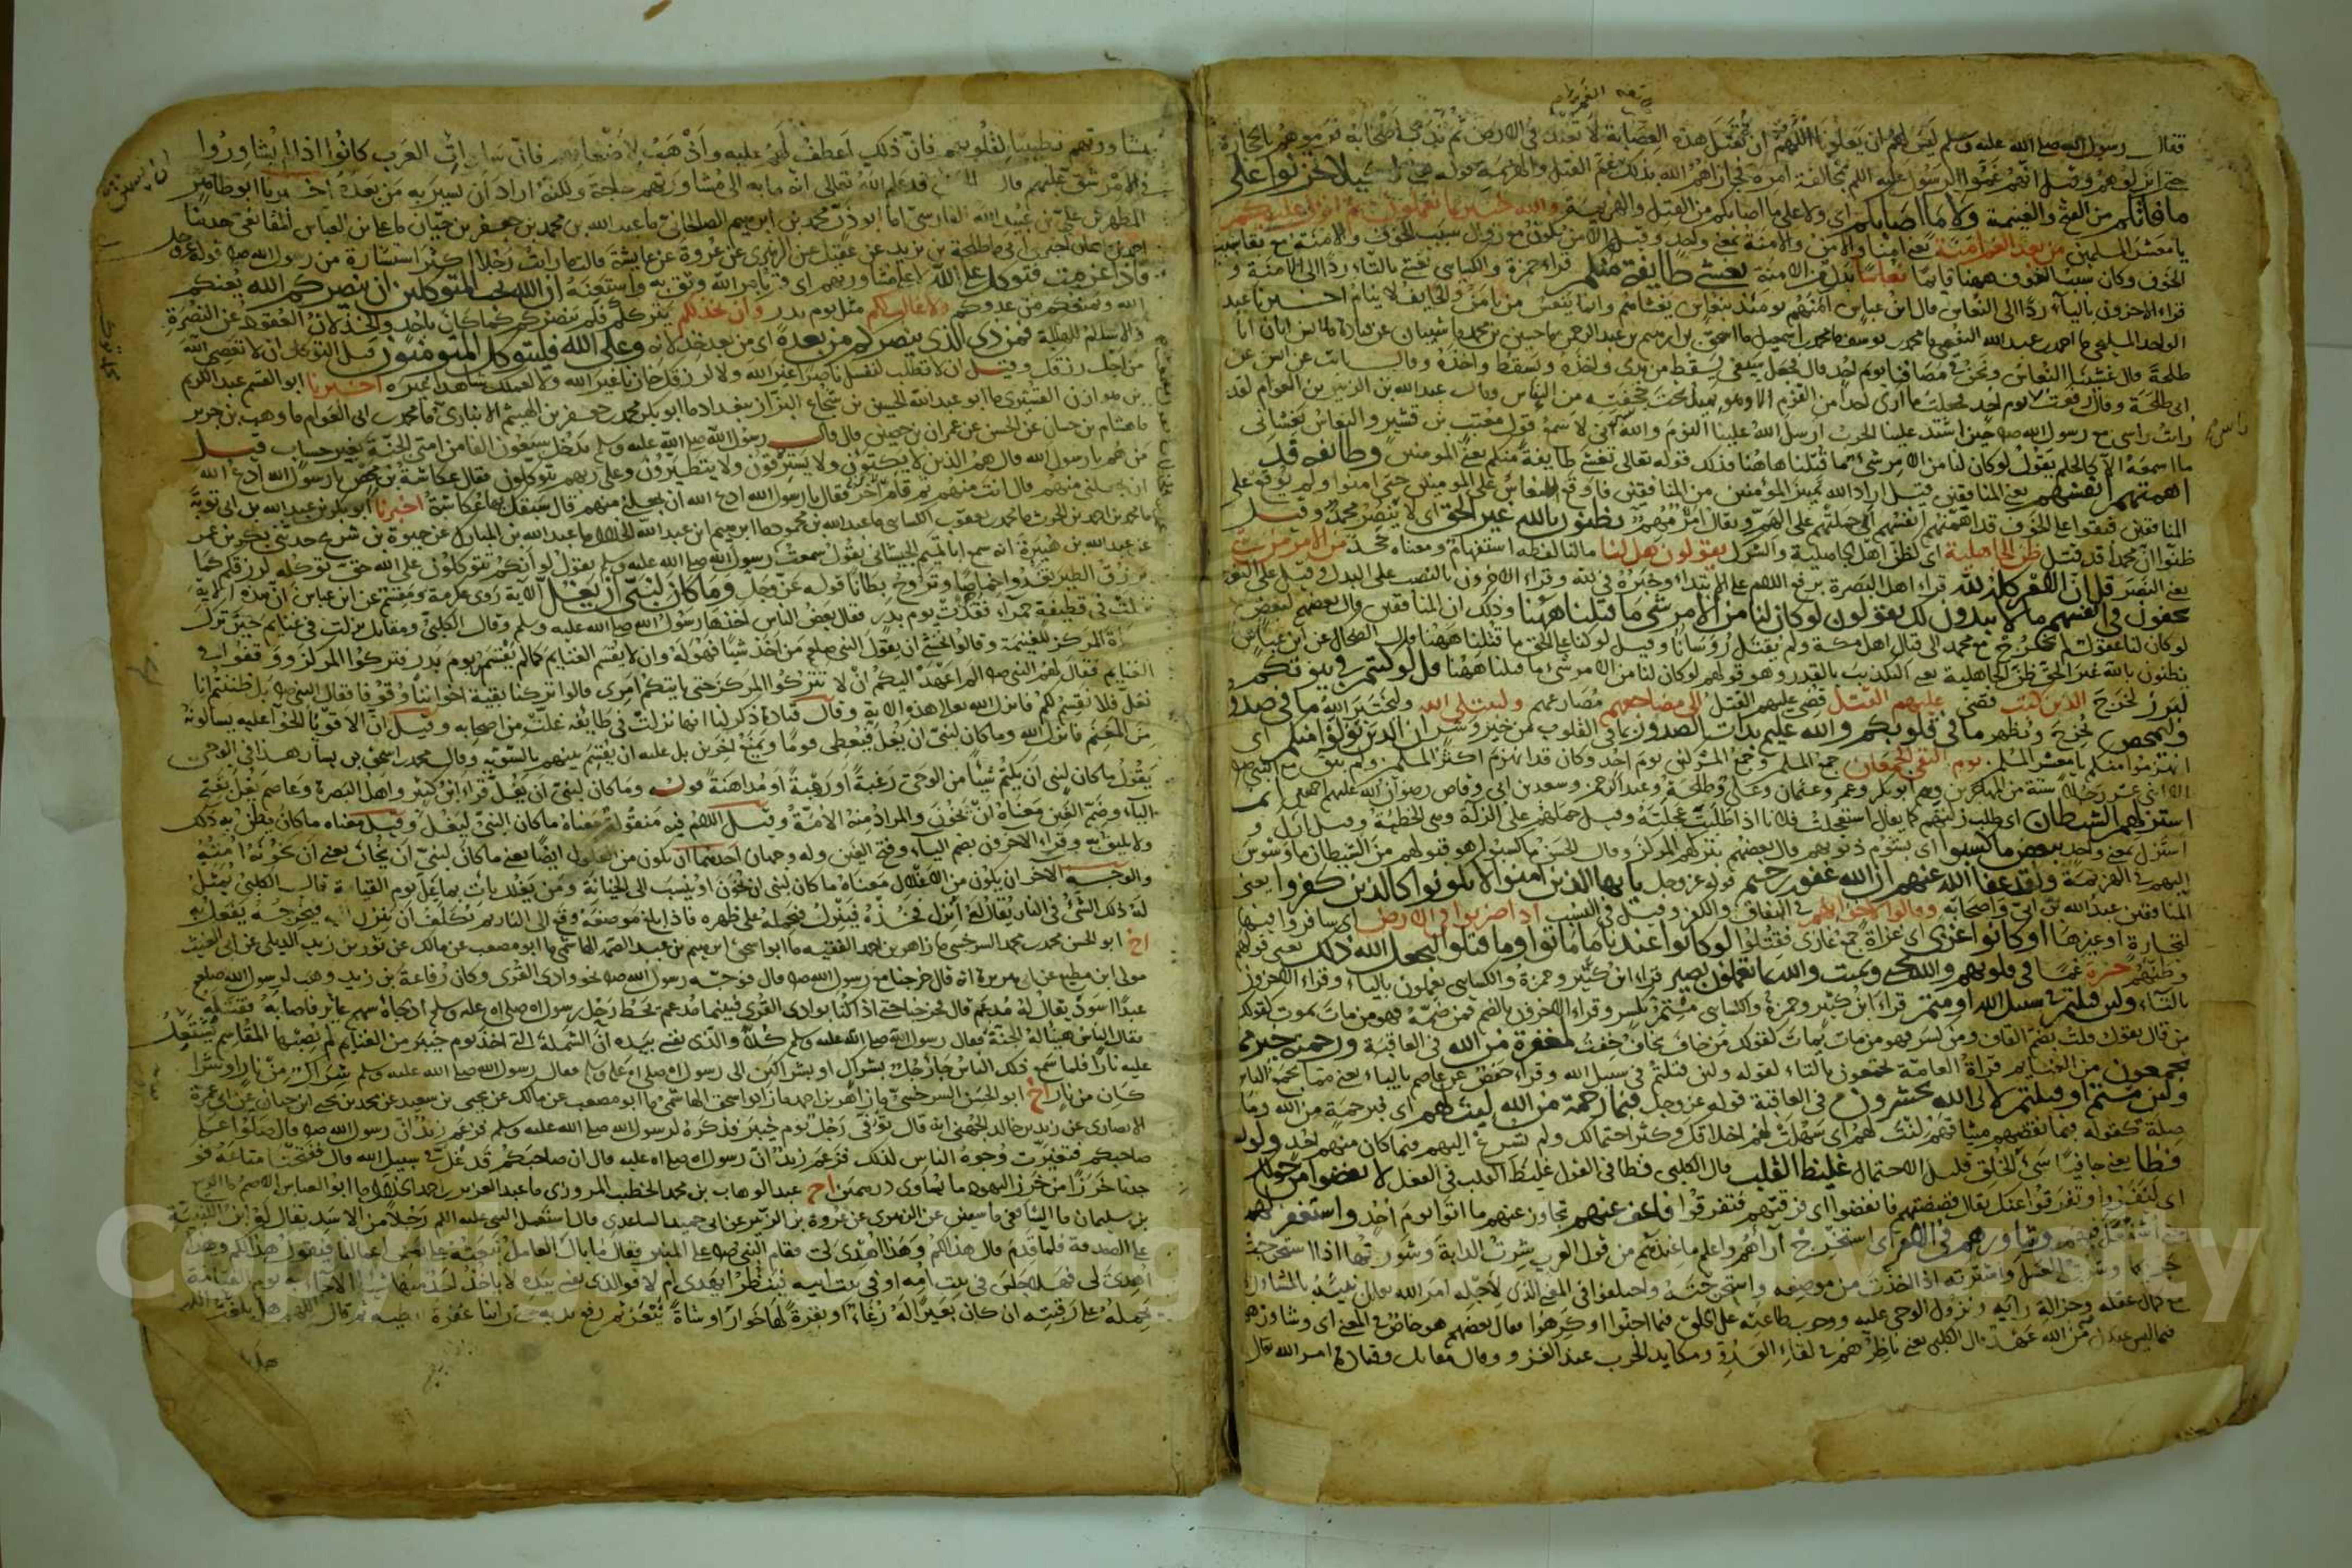 فقال رسول الله صلى الله عليه وسلم ليس لهم ان يعلونا اللهم ان تقتل هذه العصابة لا تعبد في الارض ثم ندب اصحابه فرموهم بالحجارة
حتى انزلوهم وقيل انهم غموا الرسول عليه السلم بمخالفة امره فجازاهم الله بذلك غم القتل والهزيمة قوله لكيلا تحزنوا على
ما فاتكم من الفتح والغنيمة ولا ما اصابكم اي ولا على ما اصابكم من القتل والهزيمة والله خبير بما تعملون ثم انزل عليكم
يا معشر المسلمين من بعد الغم امنة يعني امنا والامن والامنة بمعنى واحد وقيل الامن يكون مع زوال سبب الخوف والامنة مع بقاء سبب
الخوف وكان سبب الخوف ههنا قايما نعاسا بدل من الامنة يغشى طايفة منكم قراء حمزة والكسايي تغشى بالتاء ردا الى الامنة و
قراء الاخرون بالياء ردا الى النعاس قال ابن عباس امنهم يومئذ بنعاس يغشاهم وانما ينعس من يامن والخايف لا ينام اخبرنا عبد
الواحد المليحي ما احمد بن عبد الله النعيمي ما محمد بن يوسف ما محمد بن اسمعيل ما اسحق بن ابرهيم بن عبد الرحمن ما حسين بن محمد ما شيبان عن قتادة ما انس ان ابا
طلحة قال غشينا النعاس ونحن في مصافنا يوم احد قال فجعل سيفي يسقط من يدي واخذه ويسقط واخذه وقال ثابت عن انس عن
ابي طلحة قال رفعت راسي يوم احد فجعلت ما ارى احدا من القوم الا وهو يميل تحت جحفته من النعاس وقال عبد الله بن الزبير بن العوام لقد
رايت راسي مع رسول الله صلم حين اشتد علينا الحرب ارسل الله علينا النوم والله اني لا سمع قول معتب بن قشير والنعاس يغشاني
ما اسمعه الا كالحلم يقول لو كان لنا من الامر شيء ما قتلنا هاهنا فذلك قوله تعالى يغشى طايفة منكم يعني المومنين وطائفة قد
اهمتهم انفسهم يعني المنافقين قيل اراد الله تمييز المؤمنين من المنافقين فاوقع النعاس على المومنين حتى امنوا ولم يوقع على
المنافقين فبقوا على الخوف قد اهمتهم انفسهم اي حملتهم على الهم ويقال امر مهم يظنون بالله غير الحق اي لا ينصر محمدا وقيل
ظنوا ان محمدا قد قتل ظن الجاهلية اي كظن اهل الجاهلية والشرك يقولون هل لنا ما لنا لفظه استفهام ومعناه جحد من الامر من شيء
يعني النصر قل ان الامر كله لله قراء اهل البصرة برفع اللام على الابتداء وخبره في لله وقراء الاخرون بالنصب على البدل وقيل على النعت
يخفون في انفسهم ما لا يبدون لك يقولون لو كان لنا من الامر شي ما قتلنا ههنا وذلك ان المنافقين قال بعضهم لبعض
لو كان لنا عقول لم نخرج مع محمد الى قتال اهل مكة ولم يقتل رؤساءنا وقيل لو كنا على الحق ما قتلنا ههنا قال الضحاك عن ابن عباس
يظنون بالله غير الحق ظن الجاهلية يعني التكذيب بالقدر وهو قولهم لو كان لنا من الامر شيء ما قتلنا ههنا قل لو كنتم في بيوتكم
لبرز لخرج الذين كتب قضى عليهم القتل قضي عليهم القتل الى مضاجعهم مصارعهم وليبتلي الله وليختبر الله ما في صدوركم
وليمحص يخرج ويظهر ما في قلوبكم والله عليم بذات الصدور بما في القلوب من خير وشر ان الذين تولوا منكم اي
انهزموا منكم يا معشر المسلمين يوم التقى الجمعان جمع المسلمين وجمع المشركين يوم احد وكان قد انهزم اكثر المسلمين ولم يبق مع النبي صلم
الا اثني عشر رجلا ستة من المهاجرين وهم ابو بكر وعمر وعثمان وعلي وطلحة وعبد الرحمن وسعد بن ابي وقاص رضوان الله عليهم اجمعين انما
استزلهم الشيطان اي طلب زلتهم كما يقال استعجلت فلانا اذا طلبت عجلته وقيل حملهم على الزلة وهي الخطية وقيل ازل و
استزل بمعنى واحد ببعض ما كسبوا اي بشؤم ذنوبهم قال بعضهم بتركهم المركز وقال الحسن ما كسبوا هو قبولهم من الشيطان ما وسوس
اليهم في الهزيمة ولقد عفا الله عنهم ان الله غفور رحيم قوله عز وجل يا يها الذين امنوا لا تكونوا كالذين كفروا يعني
المنافقين عبد الله بن ابي واصحابه وقالوا لاخوانهم في النفاق والكفر وقيل في النسب اذا ضربوا في الارض اي سافروا فيها
لتجارة او غيرها او كانوا غزى اي غزاة جمع غازي فقتلوا لو كانوا عندنا ما ماتوا وما قتلوا ليجعل الله ذلك يعني قولهم
وظنهم حسرة غما في قلوبهم والله يحيي ويميت والله بما تعملون بصير قراء ابن كثير وحمزة والكسايي يعملون بالياء وقراء الاخرون
بالتاء ولئن قتلتم في سبيل الله او متم قراء ابن كثير وحمزة والكسايي متم بالكسر وقراء الاخرون بالضم فمن ضمه فهو من مات يموت كقولك
من قال يقول قلت بضم القاف ومن كسر فهو من مات يمات كقولك من خاف يخاف خفت لمغفرة من الله في العاقبة ورحمة خير مما
تجمعون من الغنايم قراءة العامة تجمعون بالتاء لقوله ولئن قتلتم في سبيل الله وقراء حفص عن عاصم بالياء يعني مما يجمع الناس
ولئن متم او قتلتم لالى الله تحشرون في العاقبة قوله عز وجل فبما رحمة من الله لنت لهم اي فبرحمة من الله وما
صلة كقوله فبما نقضهم ميثاقهم لنت لهم اي سهلت لهم اخلاقك وكثر احتمالك ولم تسرع اليهم فيما كان منهم احد ولو كنت
فظا يعني جافيا سيء الخلق قليل الاحتمال غليظ القلب قال الكلبي فظا في القول غليظ القلب في الفعل لانفضوا من حولك
اي لنفروا وتفرقوا عنك يقال فضضتهم فانفضوا اي فرقتهم فتفرقوا فاعف عنهم تجاوز عنهم ما اتوا يوم احد واستغفر لهم
وشاورهم في الامر اي استخرج آراهم واعلم ما عندهم من قول العرب شرت الدابة وشورتها اذا استخرجت
جريها وشرت العسل واشترته اذا اخذته من موضعه واستخرجته واختلفوا في المعنى الذي لاجله امر الله تعالى نبيه بالمشاورة
مع كمال عقله وجزالة رايه ونزول الوحي عليه ووجوب طاعته على الخلق فيما احبوا او كرهوا فقال بعضهم هو خاص في المعنى اي وشاورهم
فيما ليس عندك من الله عهد قال الكلبي يعني ناظرهم في لقاء العدو ومكايد الحرب عند الغزو وقال مقاتل وقتادة امر الله تعالى
بمشاورتهم تطييبا لقلوبهم فان ذلك اعطف لهم عليه واذهب لاضغانهم فان سادات العرب كانوا اذا لم يشاوروا
في الامر شق عليهم قال قد علم الله تعالى انه ما به الى مشاورتهم حاجة ولكنه اراد ان يستن به من بعده اخبرنا ابو طاهر
المطهر بن علي بن عبيد الله الفارسي انا ابو ذر محمد بن ابرهيم الصالحاني ما عبد الله بن محمد بن جعفر بن حيان ما علي بن العباس المقانعي حدثنا
احمد بن ماهان اخبرني ابي ما طلحة بن يزيد عن عقيل عن الزهري عن عروة عن عايشة قالت ما رايت رجلا اكثر استشارة من رسول الله صلم قوله عز وجل
فاذا عزمت فتوكل على الله لا على مشاورتهم اي قم بامر الله وثق به واستعنه ان الله يحب المتوكلين ان ينصركم الله يعنكم
الله ويمنعكم من عدوكم فلا غالب لكم مثل يوم بدر وان يخذلكم يترككم فلم ينصركم كما كان باحد والخذلان القعود عن النصرة
والاسلام للهلكة فمن ذي الذي ينصركم من بعده اي من بعد خذلانه وعلى الله فليتوكل المؤمنون قيل التوكل ان لا تعصي الله
من اجل رزقك وقيل ان لا تطلب لنفسك ناصرا غير الله ولا لرزقك خازنا غير الله ولا لعملك شاهدا غيره اخبرنا ابو القسم عبد الكريم
بن هوازن القشيري ما ابو عبد الله الحسين بن شجاع البزاز ببغداد ما ابو بكر محمد بن جعفر بن الهيثم الانباري ما محمد بن ابي العوام ما وهب بن جرير
ما هشام بن حسان عن الحسن عن عمران بن حصين قال قال رسول الله صلى الله عليه وسلم يدخل سبعون الفا من امتي الجنة بغير حساب قيل
من هم يا رسول الله قال هم الذين لا يكتوون ولا يسترقون ولا يتطيرون وعلى ربهم يتوكلون فقال عكاشة بن محصن يا رسول الله ادع الله
ان يجعلني منهم قال انت منهم ثم قام آخر فقال يا رسول الله ادع الله ان يجعلني منهم قال سبقك بها عكاشة اخبرنا ابو بكر بن عبد الله بن ابي توبة
ما محمد بن احمد بن الحرث ما محمد بن يعقوب الكسايي ما عبد الله بن محمود ما ابرهيم بن عبد الله الخلال ما عبد الله بن المبارك عن حيوة بن شريح حدثني بكر بن عمر
عن عبد الله بن هبيرة انه سمع ابا تميم الجيشاني يقول سمعت رسول الله صلى الله عليه وسلم يقول لو انكم تتوكلون على الله حق توكله لرزقكم كما
يرزق الطير تغدوا خماصا وتروح بطانا قوله عز وجل وما كان لنبي ان يغل الآية روى عكرمة ومقسم عن ابن عباس ان هذه الآية
نزلت في قطيفة حمراء فقدت يوم بدر فقال بعض الناس اخذها رسول الله صلى الله عليه وسلم وقال الكلبي ومقاتل نزلت في غنايم احد حين ترك
الرماة المركز للغنيمة وقالوا نخشى ان يقول النبي صلعم من اخذ شيئا فهو له وان لا يقسم الغنايم كما لم يقسم يوم بدر فتركوا المركز ووقعوا في
الغنايم فقال لهم النبي صلم الم اعهد اليكم ان لا تتركوا المركز حتى ياتيكم امري قالوا تركنا بقية اخواننا وقوفا فقال النبي صلم بل ظننتم انا
نغل فلا نقسم لكم فانزل الله تعالى هذه الاية وقال قتادة ذكر لنا انها نزلت في طايفة غلت من اصحابه وقيل ان الاقويا الحوا عليه يسألونه
من المغنم فانزل الله وما كان لنبي ان يغل فيعطي قوما ويمنع آخرين بل عليه ان يقسم بينهم بالسوية وقال محمد بن اسحق بن يسار هذا في الوحي
يقول ما كان لنبي ان يكتم شيئا من الوحي رغبة او رهبة او مداهنة قوله وما كان لنبي ان يغل قراء ابن كثير واهل البصرة وعاصم يغل بفتح
الياء وضم الغين معناه ان يخون والمراد منه الامة وقيل اللام فيه منقولة معناه ما كان النبي ليغل وقيل معناه ما كان يظن به ذلك
ولا يليق به وقراء الاخرون بضم الياء وفتح الغين وله وجهان احدهما ان يكون من الغلول ايضا يعني ما كان لنبي ان يخان يعني ان تخونه امته
والوجه الآخر ان يكون من الاغلال معناه ما كان لنبي ان يخون او ينسب الى الخيانة ومن يغلل يأت بما غل يوم القيامة قال الكلبي يمثل
له ذلك الشيء في النار يقال له انزل فخذه فينزل فيحمله على ظهره فاذا بلغ موضعه وقع الى النار ثم يكلف ان ينزل اليه فيخرجه يفعل به
اخ ابو الحسن محمد بن محمد السرخسي ما زاهر بن احمد الفقيه ما ابو اسحق ابرهيم بن عبد الصمد الهاشمي ما ابو مصعب عن مالك عن ثور بن زيد الديلي عن ابي الغيث
مولى ابن مطيع عن ابي هريرة انه قال خرجنا مع رسول الله صلم قال فوجه رسول الله صلم نحو وادي القرى وكان رفاعة بن زيد وهب لرسول الله صلعم
عبدا اسود يقال له مدعم قال فخرجنا حتى اذا كنا بوادي القرى فبينما مدعم يحط رحل رسول الله صلى الله عليه وسلم اذ جاءه سهم عاير فاصابه فقتله
فقال الناس هنيئا له الجنة فقال رسول الله صلى الله عليه وسلم كلا والذي نفسي بيده ان الشملة التي اخذ يوم خيبر من الغنايم لم تصبها المقاسم تشتعل
عليه نارا فلما سمع ذلك الناس جاء رجل بشراك او بشراكين الى رسول الله صلى الله عليه وسلم فقال رسول الله صلى الله عليه وسلم شراك من نار او شراكان
كان من نار اخ ابو الحسن السرخسي ما زاهر بن احمد ما ابو اسحق الهاشمي ما ابو مصعب عن مالك عن يحيى بن سعيد عن محمد بن يحيى ابن حبان عن ابي عمرة
الانصاري عن زيد بن خالد الجهني انه قال توفي رجل يوم خيبر فذكروه لرسول الله صلى الله عليه وسلم فزعم زيد ان رسول الله صلم قال صلوا على
صاحبكم فتغيرت وجوه الناس لذلك فزعم زيد ان رسول الله صلى الله عليه قال ان صاحبكم قد غل في سبيل الله قال ففتحنا متاعه فو
جدنا خرزا من خرز اليهود ما يساوي درهمين اخ عبد الوهاب بن محمد الخطيب المروزي ما عبد العزيز بن احمد الخلال ما ابو العباس الاصم ما الربيع
بن سليمان ما الشافعي ما سفين عن الزهري عن عروة بن الزبير عن ابي حميد الساعدي قال استعمل النبي عليه السلم رجلا من الاسد يقال له ابن اللتبية
على الصدقة فلما قدم قال هذا لكم وهذا اهدي لي فقام النبي صلم على المنبر فقال ما بال العامل نبعثه على بعض اعمالنا فيقول هذا لكم وهذا
اهدي لي فهلا جلس في بيت امه او في بيت ابيه فينظر ايهدى له ام لا فوالذي نفسي بيده لا ياخذ احد منها شيئا الا جاء به يوم القيامة
يحمله على رقبته ان كان بعيرا له رغاء او بقرة لها خوار او شاة تيعر ثم رفع يديه حتى راينا عفرة ابطيه ثم قال اللهم هل بلغت